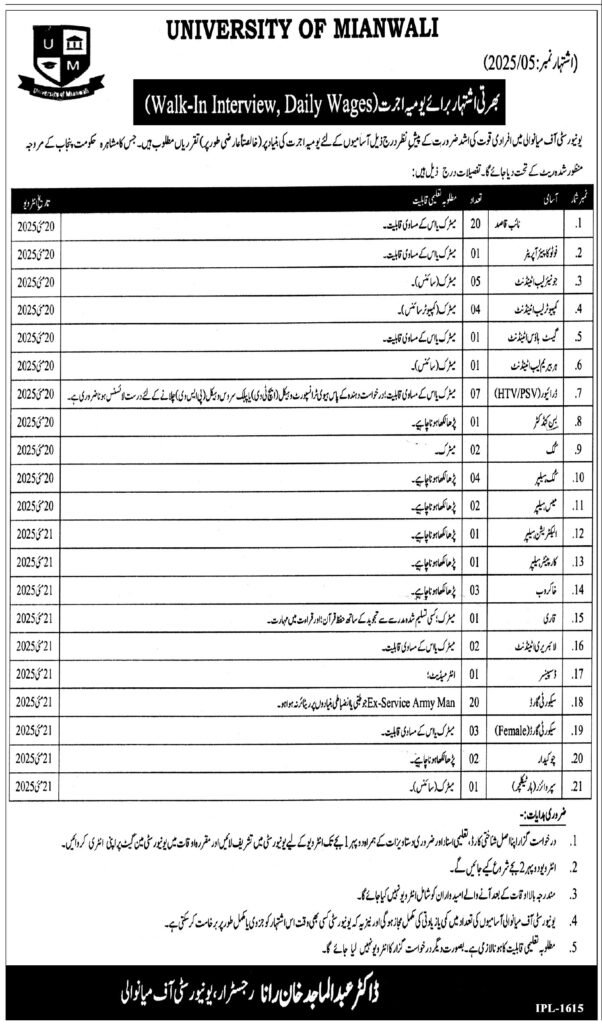 UNIVERSITY OF MIANWALI
U
M
University of Mianwali
(اشتہار نمبر: 2025/05)
بھرتی اشتہار برائے یومیہ اجرت (Walk-In Interview, Daily Wages)
یونیورسٹی آف میانوالی میں افرادی قوت کی اشد ضرورت کے پیش نظر درج ذیل آسامیوں کے لئے یومیہ اجرت کی بنیاد پر (خالصتاً عارضی طور پر) تقرریاں مطلوب ہیں۔ جس کا مشاہرہ حکومت پنجاب کے مروجہ
منظور شدہ ریٹ کے تحت دیا جائے گا۔ تفصیلات درج ذیل ہیں:
نمبر شمار آسامی تعداد مطلوبہ تعلیمی قابلیت تاریخ انٹرویو
1. نائب قاصد 20 میٹرک یا اس کے مساوی قابلیت۔ 20 مئی 2025
2. فوٹو کاپیئر آپریٹر 01 میٹرک یا اس کے مساوی قابلیت۔ 20 مئی 2025
3. جونیئر لیب اٹینڈنٹ 05 میٹرک (سائنس)۔ 20 مئی 2025
4. کمپیوٹر لیب اٹینڈنٹ 04 میٹرک (کمپیوٹر سائنس)۔ 20 مئی 2025
5. گیسٹ ہاؤس اٹینڈنٹ 01 میٹرک یا اس کے مساوی قابلیت۔ 20 مئی 2025
6. ہربیریم لیب اٹینڈنٹ 01 میٹرک (سائنس)۔ 20 مئی 2025
7. ڈرائیور (HTV/PSV) 07 میٹرک یا اس کے مساوی قابلیت؛ درخواست دہندہ کے پاس ہیوی ٹرانسپورٹ وہیکل (ایچ ٹی وی) یا پبلک سروس وہیکل (پی ایس وی) چلانے کے لئے درست لائسنس ہونا ضروری ہے۔ 20 مئی 2025
8. بس کنڈکٹر 01 پڑھا لکھا ہونا چاہیے۔ 20 مئی 2025
9. کُک 02 میٹرک۔ 20 مئی 2025
10. کُک ہیلپر 04 پڑھا لکھا ہونا چاہیے۔ 20 مئی 2025
11. میس ہیلپر 02 پڑھا لکھا ہونا چاہیے۔ 20 مئی 2025
12. الیکٹریشن ہیلپر 01 پڑھا لکھا ہونا چاہیے۔ 21 مئی 2025
13. کارپینٹر ہیلپر 01 پڑھا لکھا ہونا چاہیے۔ 21 مئی 2025
14. خاکروب 03 پڑھا لکھا ہونا چاہیے۔ 21 مئی 2025
15. قاری 01 میٹرک؛ کسی تسلیم شدہ مدرسے سے تجوید کے ساتھ حفظ قرآن؛ اور قراءت میں مہارت۔ 21 مئی 2025
16. لائبریری اٹینڈنٹ 02 میٹرک یا اس کے مساوی قابلیت۔ 21 مئی 2025
17. ڈسپنسر 01 انٹرمیڈیٹ؛ 21 مئی 2025
18. سیکورٹی گارڈ 20 Ex-Service Army Man جو طبی یا انضباطی بنیادوں پر ریٹائر نہ ہوا ہو۔ 21 مئی 2025
19. سیکورٹی گارڈ (Female) 03 میٹرک یا اس کے مساوی قابلیت۔ 21 مئی 2025
20. چوکیدار 02 پڑھا لکھا ہونا چاہیے۔ 21 مئی 2025
21. سپروائزر (ہارٹیکلچر) 01 میٹرک (سائنس)۔ 21 مئی 2025
ضروری ہدایات:-
1. درخواست گزار اپنا اصل شناختی کارڈ، تعلیمی اسناد اور ضروری دستاویزات کے ہمراہ دوپہر 1 بجے تک انٹرویو کے لیے یونیورسٹی میں تشریف لائیں اور مقررہ اوقات میں یونیورسٹی مین گیٹ پر اپنی انٹری کروائیں۔
2. انٹرویو دوپہر 2 بجے شروع کیے جائیں گے۔
3. مندرجہ بالا اوقات کے بعد آنے والے امیدواران کو شامل انٹرویو نہیں کیا جائے گا۔
4. یونیورسٹی آف میانوالی آسامیوں کی تعداد میں کمی یا زیادتی کی مکمل مجاز ہوگی اور نیز یہ کہ یونیورسٹی کسی بھی وقت اس اشتہار کو جزوی یا مکمل طور پر برخاست کر سکتی ہے۔
5. مطلوبہ تعلیمی قابلیت کا ہونا لازمی ہے۔ بصورت دیگر درخواست گزار کا انٹرویو نہیں لیا جائے گا۔
ڈاکٹر عبدالماجد خان رانا رجسٹرار، یونیورسٹی آف میانوالی
IPL-1615